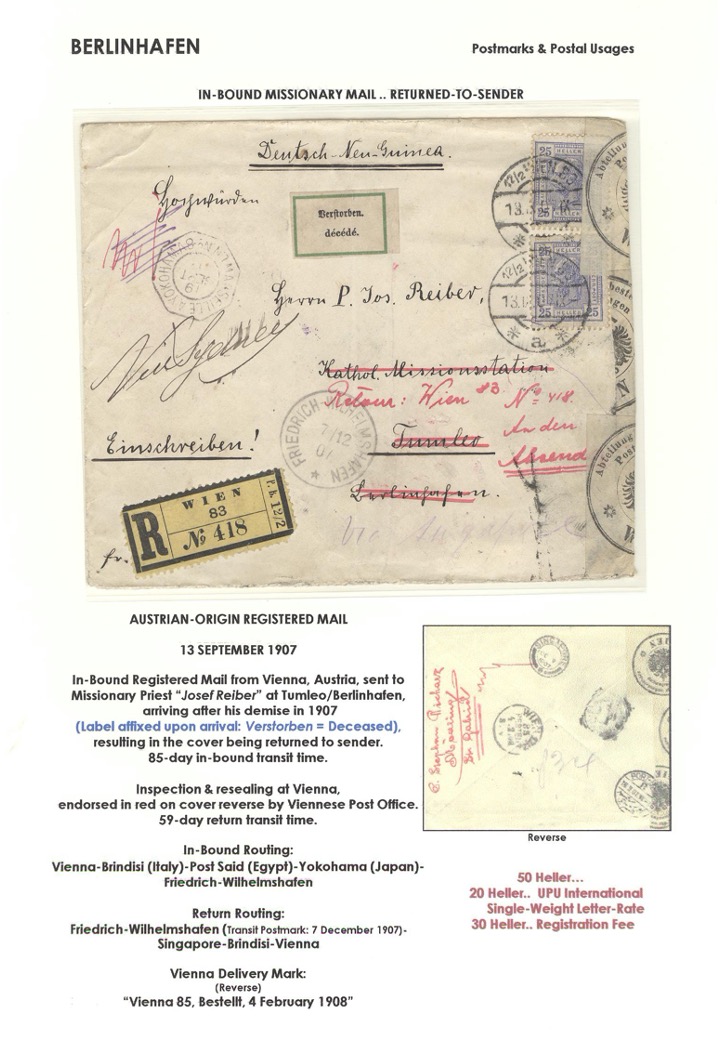 BERLINHAFEN
Postmarks & Postal Usages
IN-BOUND MISSIONARY MAIL .. RETURNED-TO-SENDER
Deutsch-Neu-Guinea.
Hochwürden
Verstorben.
décédé.
25 25
HELLER
13.IX
12/2 WIEN 83
Herrn P. Jos. Reiber,
Via Sydney
Kathol. Missionsstation
Retour: Wien 83 No 418.
An den
Tumleo
Absend
FRIEDRICH-WILHELMSHAFEN
7/12
07
Einschreiben!
Berlinhafen.
R
WIEN
83
No 418
P.k. 12/2
fr.
via Singapore
AUSTRIAN-ORIGIN REGISTERED MAIL
13 SEPTEMBER 1907
In-Bound Registered Mail from Vienna, Austria, sent to
Missionary Priest "Josef Reiber" at Tumleo/Berlinhafen,
arriving after his demise in 1907
(Label affixed upon arrival: Verstorben = Deceased),
resulting in the cover being returned to sender.
85-day in-bound transit time.
Inspection & resealing at Vienna,
endorsed in red on cover reverse by Viennese Post Office.
59-day return transit time.
In-Bound Routing:
Vienna-Brindisi (Italy)-Post Said (Egypt)-Yokohama (Japan)-
Friedrich-Wilhelmshafen
Return Routing:
Friedrich-Wilhelmshafen (Transit Postmark: 7 December 1907)-
Singapore-Brindisi-Vienna
Vienna Delivery Mark:
(Reverse)
"Vienna 85, Bestellt, 4 February 1908"
Reverse
50 Heller...
20 Heller.. UPU International
Single-Weight Letter-Rate
30 Heller.. Registration Fee